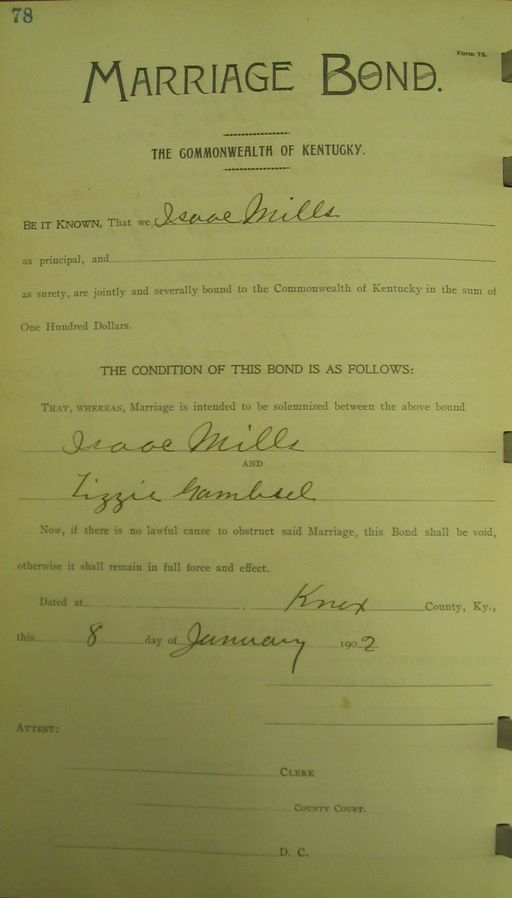 78
Form 73.
MARRIAGE BOND.
THE COMMONWEALTH OF KENTUCKY.
BE IT KNOWN, That we, Isaac Mills
as principal, and
as surety, are jointly and severally bound to the Commonwealth of Kentucky in the sum of
One Hundred Dollars.
THE CONDITION OF THIS BOND IS AS FOLLOWS:
THAT, WHEREAS, Marriage is intended to be solemnized between the above bound
Isaac Mills
AND
Lizzie Gambrel
Now, if there is no lawful cause to obstruct said Marriage, this Bond shall be void,
otherwise it shall remain in full force and effect.
Dated at Knox County, Ky.,
this 8 day of January 1902
ATTEST:
CLERK
COUNTY COURT.
D. C.